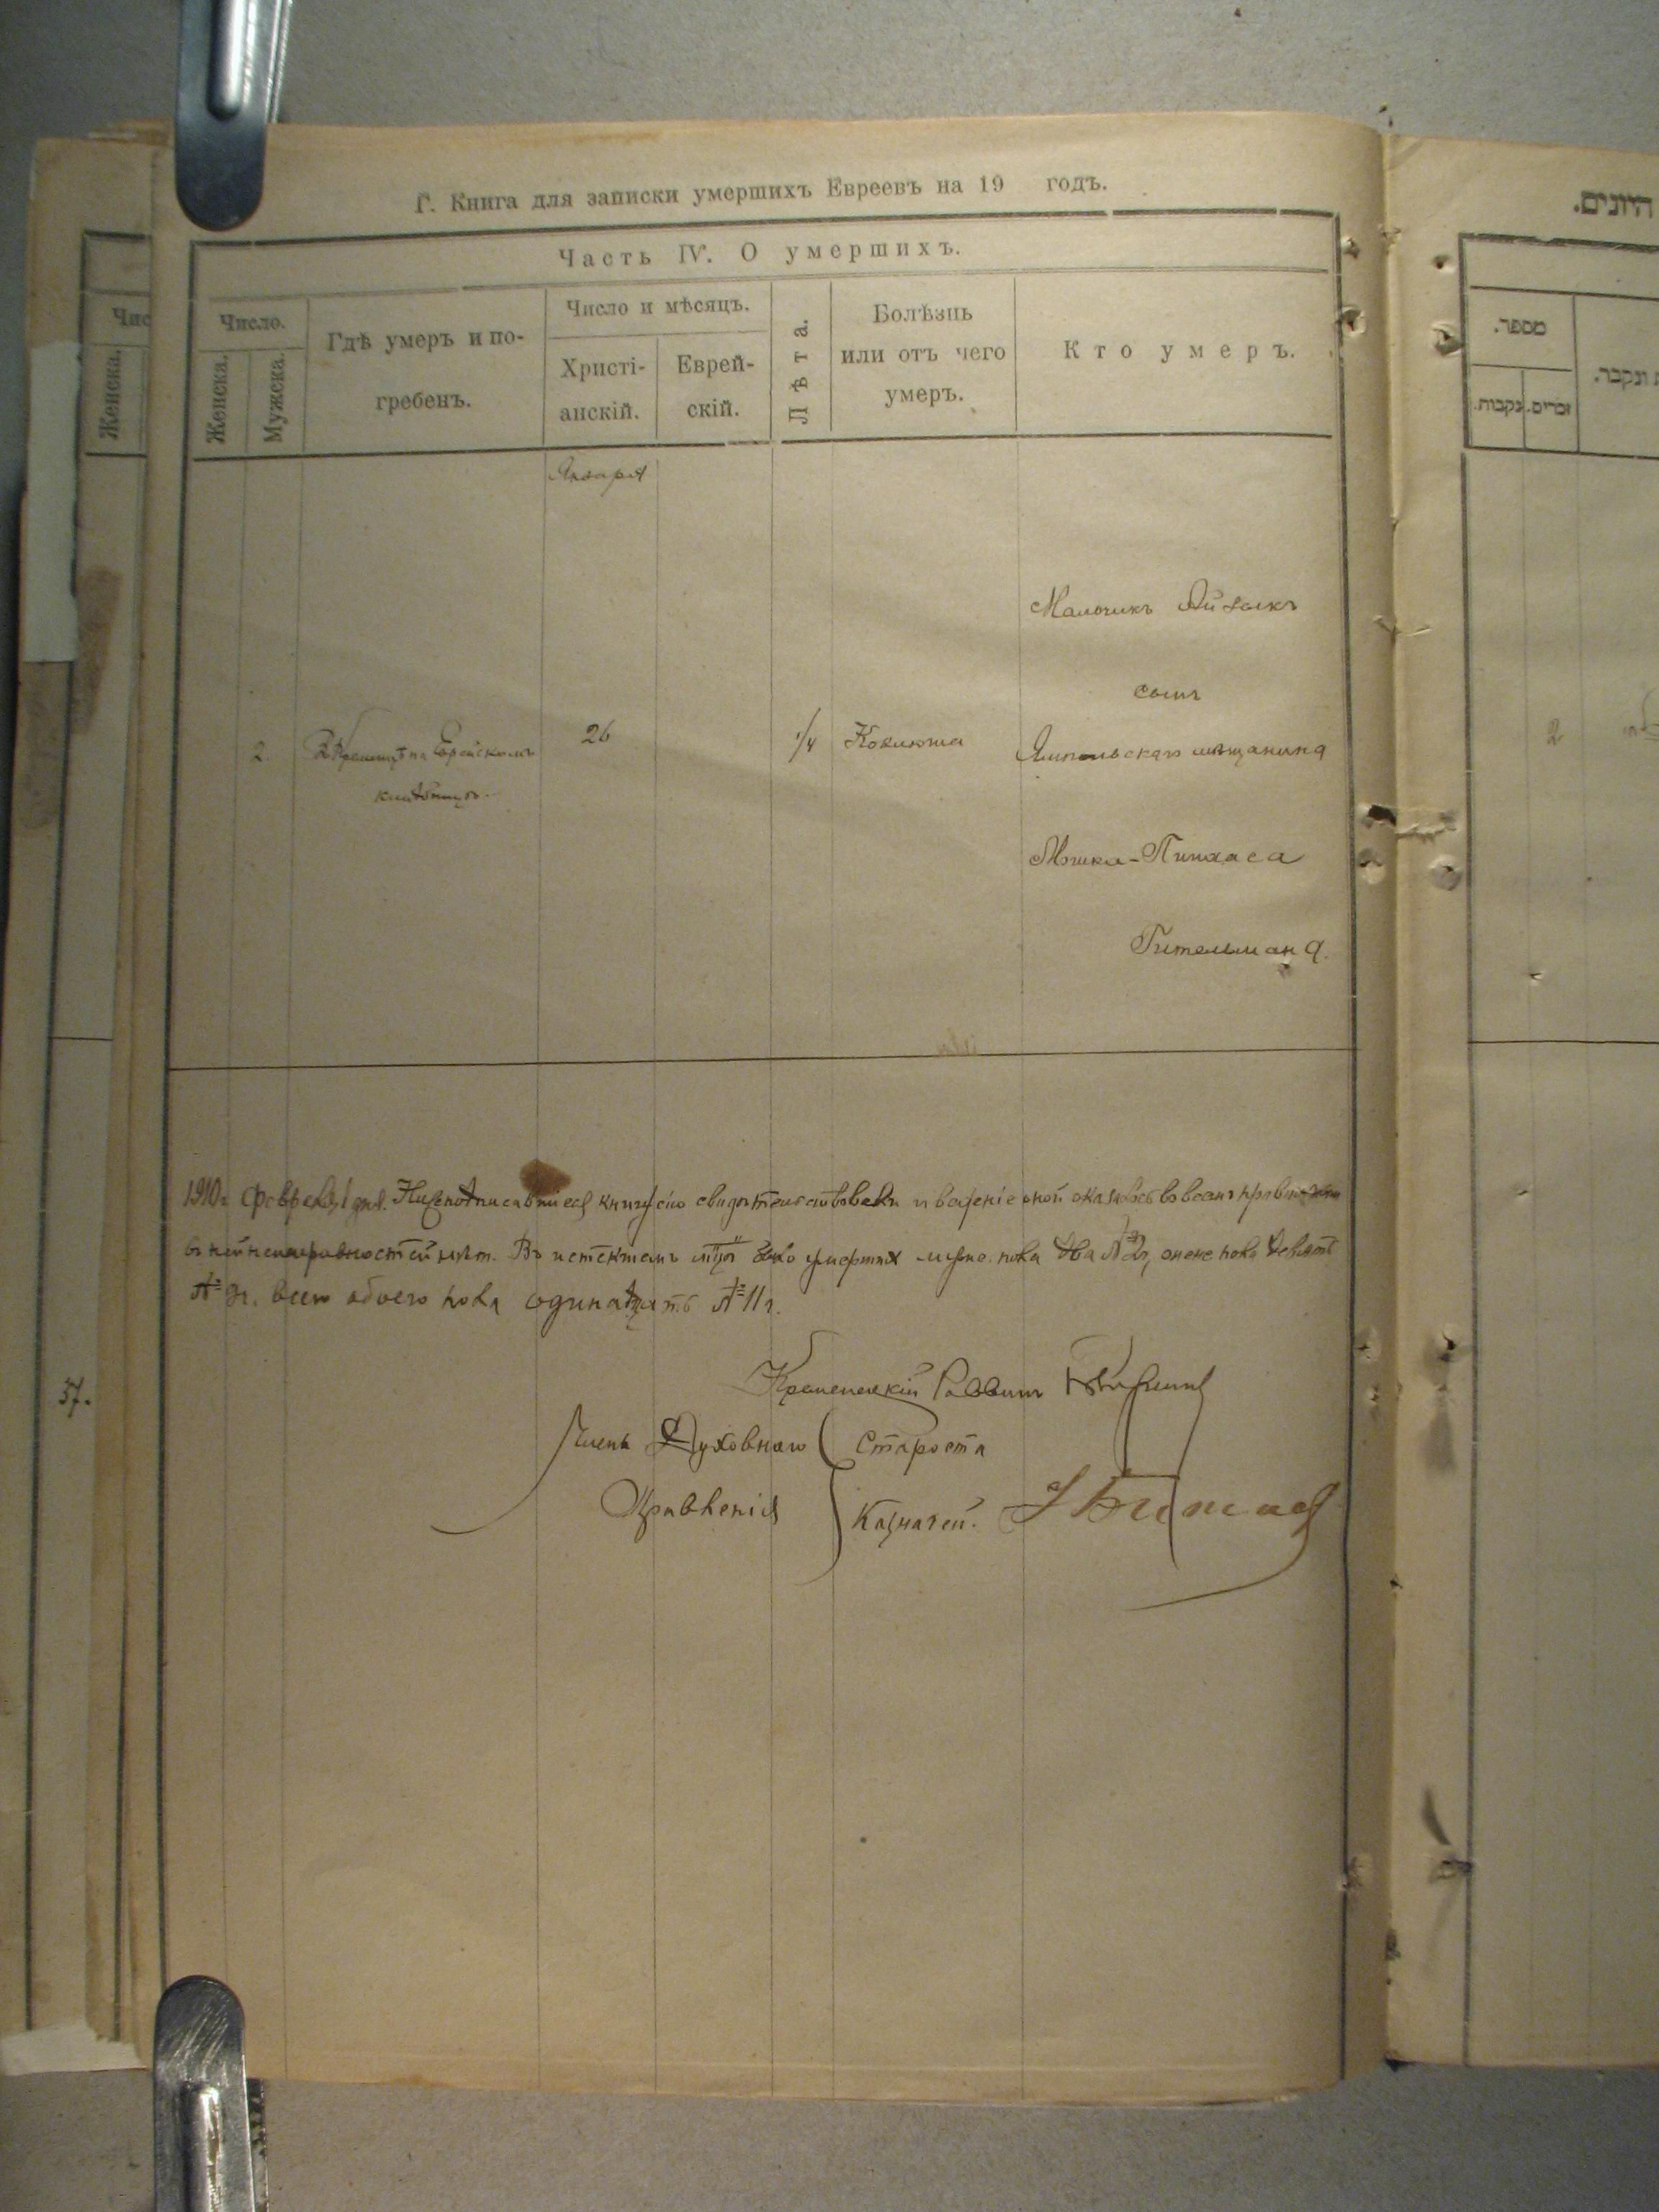 Г. Книга для записки умершихъ Евреевъ на 19 годъ.
Часть IV. О умершихъ.
Число.
Женска.
Мужска.
Гдѣ умеръ и по-
гребенъ.
Число и мѣсяцъ.
Христі-
анскій.
Еврей-
скій.
Лѣта.
Болѣзнь
или отъ чего
умеръ.
Кто умеръ.
Января
2.
В Кременцѣ на Еврейскомъ
кладбищѣ.
26
1/4
Коклюша
Мальчикъ Айзикъ
сынъ
Ямпольскаго мѣщанина
Мошка-Пинхаса
Гительмана.
1910 г Февраля 1 дня. Нижеподписавшіеся книгу сію свидѣтельствовали и веденіе оной оказалось во всемъ правильнымъ
въ ней неисправностей нѣтъ. Въ истекшемъ м-цѣ было умершихъ мужс. пола два № 2й, женс пола девять
№ 9й. всего обоего пола одинадцать № 11й.
Кременецкій Раввинъ
Члены Духовнаго
Правленія
Староста
Казначей.
57.
Чис
Женска.
היונים.
מספר.
ונקבר.
זכרים.
נקבות.
2